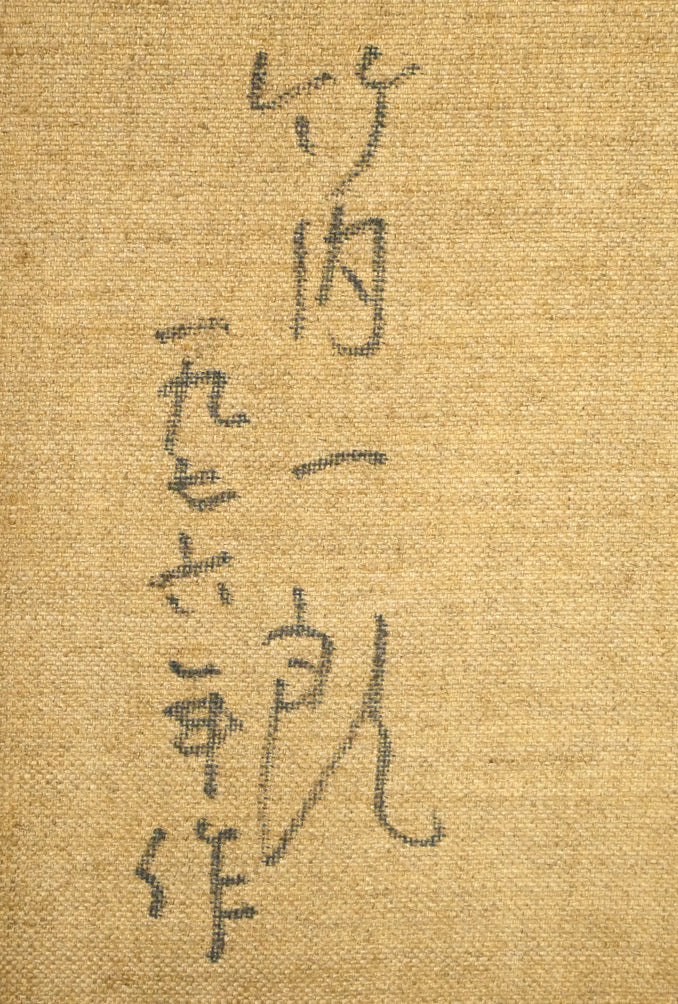 竹内一郎
一九七六年作